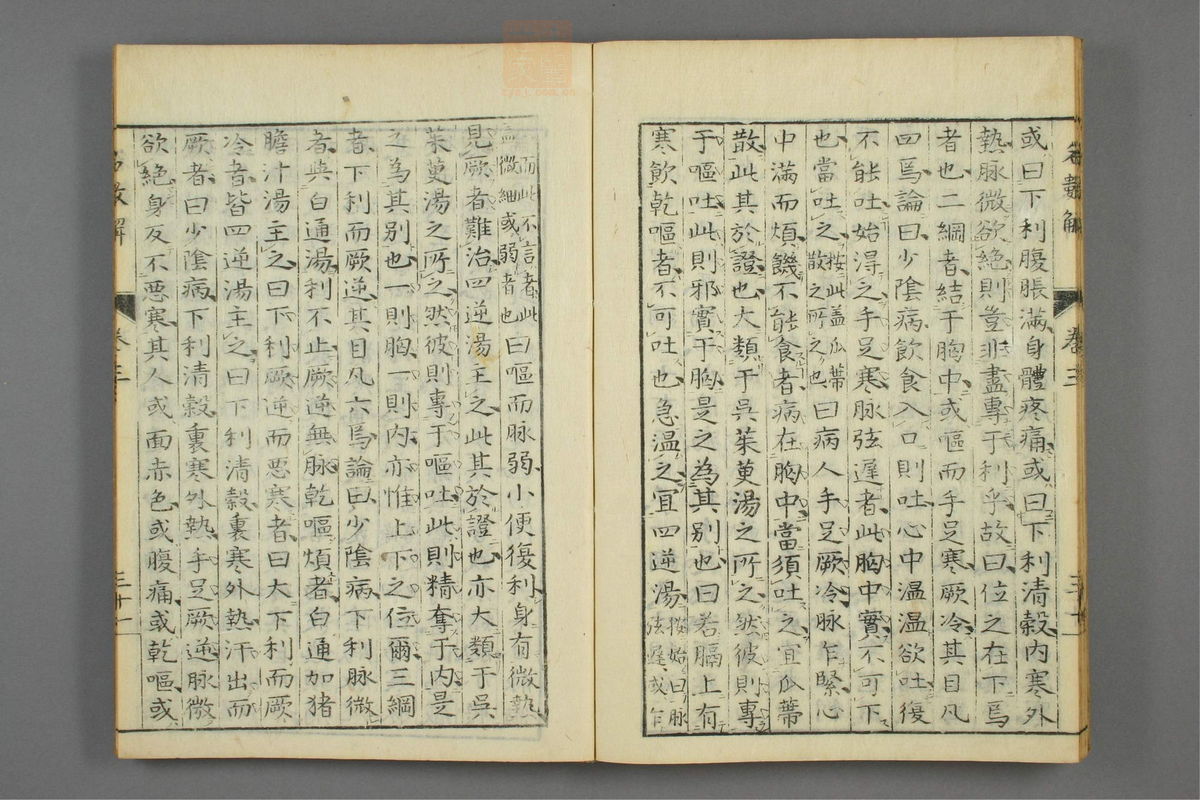 或曰下利腹脹滿身體疼痛或曰下利清穀内寒外
熱脉微欲絶則豈非盡專于利乎故曰位之在下焉
者也二綱者結于胸中或嘔而手足寒厥冷其目凡
四焉論曰少陰病飲食入口則吐心中温温欲吐復
不能吐始淂之手足寒脉弦遲者此胸中實不可下
也當吐之按此盖瓜蒂散之所之也曰病人手足厥冷脉乍緊心
中滿而煩饑不能食者病在胸中當須吐之宜瓜蒂
散此其於證也大類于呉茱萸湯之所之然彼則專
于嘔吐此則邪實于胸是之為其别也曰若膈上有
寒飲乾嘔者不可吐也急温之宜四逆湯按始曰脉弦遲或乍
卷三
而此不言者此盖微細或弱者也曰嘔而脉弱小便復利身有微熱
見厥者難治四逆湯主之此其於證也亦大類于呉
茱萸湯之所之然彼則專于嘔吐此則精奪于内是
之為其别也一則胸一則内亦惟上下之位爾三綱
者下利而厥逆其目凡六焉論曰少陰病下利脉微
者與白通湯利不止厥逆無脉乾嘔煩者白通加猪
膽汁湯主之曰下利厥逆而悪寒者曰大下利而厥
冷者皆四逆湯主之曰下利清穀裏寒外熱汗出而
厥者曰少陰病下利清穀裏寒外熱手足厥逆脉微
欲絶身反不悪寒其人或面赤色或腹痛或乾嘔或